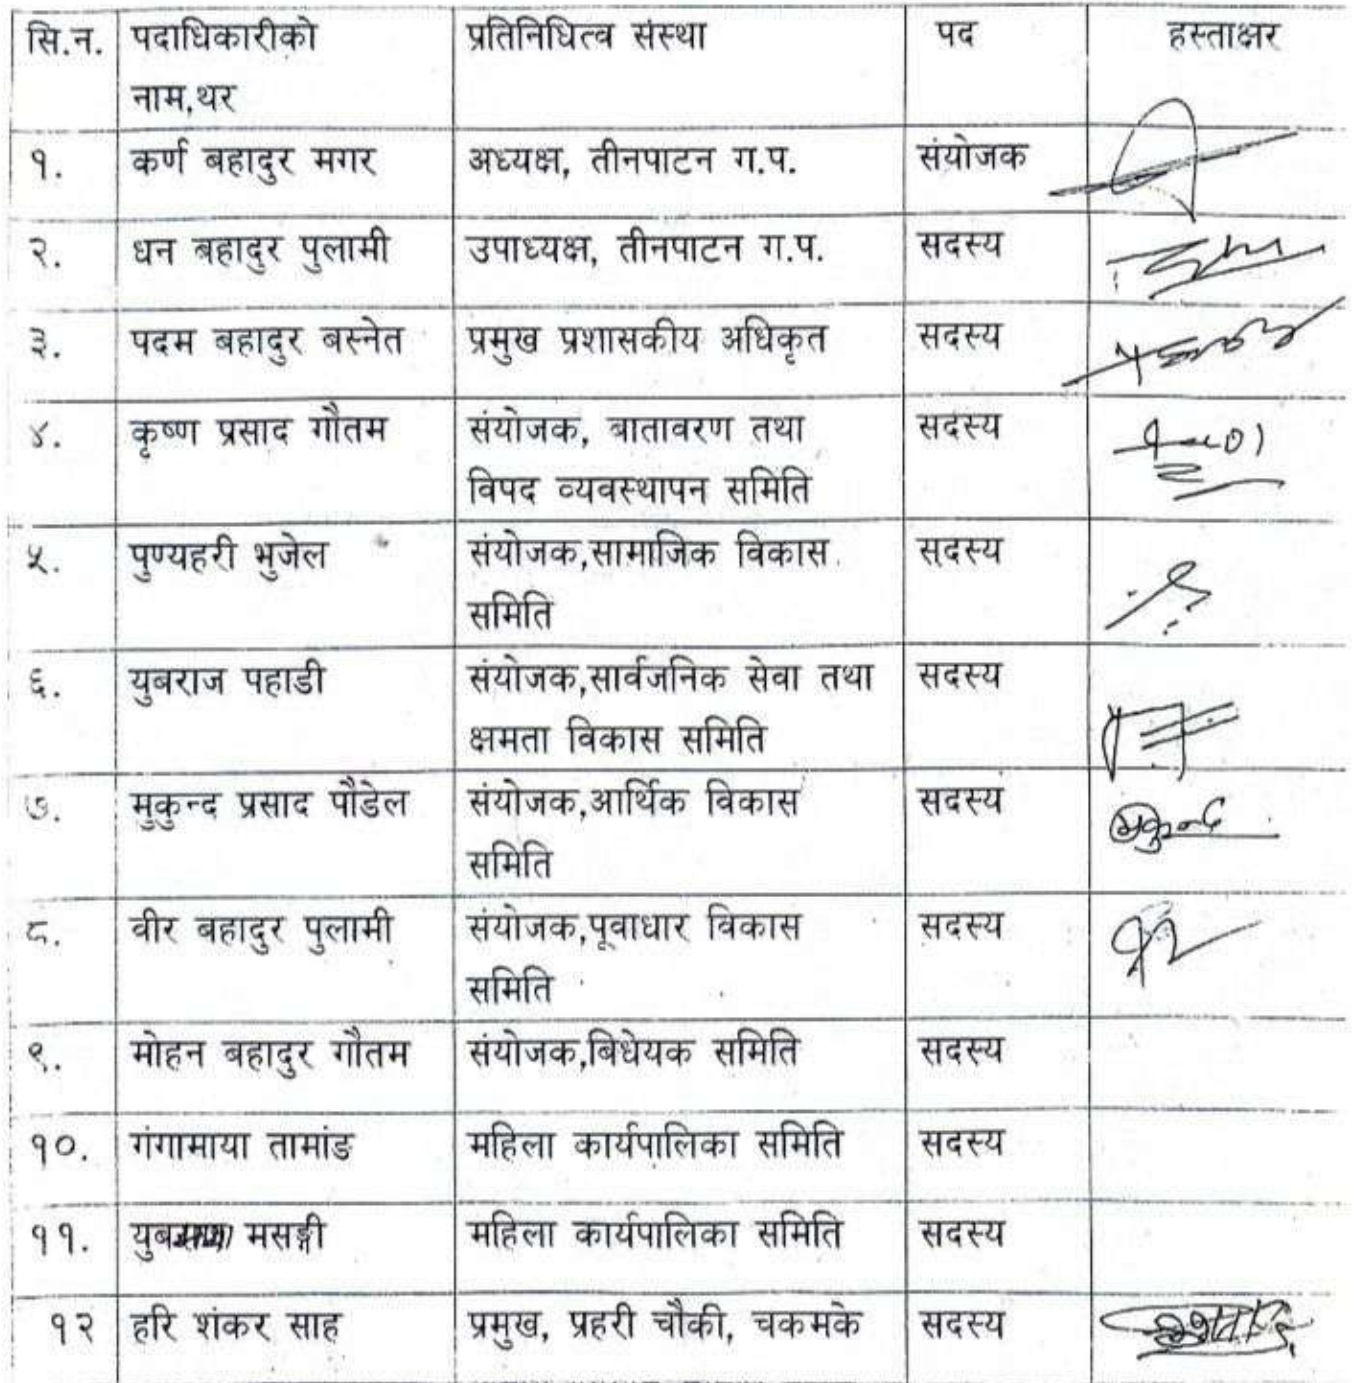 सि.न. पदाधिकारीको प्रतिनिधित्व संस्था पद हस्ताक्षर
नाम,थर
१. कर्ण बहादुर मगर अध्यक्ष, तीनपाटन ग.प. संयोजक
२. धन बहादुर पुलामी उपाध्यक्ष, तीनपाटन ग.प. सदस्य
३. पदम बहादुर बस्नेत प्रमुख प्रशासकीय अधिकृत सदस्य
४. कृष्ण प्रसाद गौतम संयोजक, बातावरण तथा सदस्य
विपद व्यवस्थापन समिति
५. पुण्यहरी भुजेल संयोजक,सामाजिक विकास सदस्य
समिति
६. युबराज पहाडी संयोजक,सार्वजनिक सेवा तथा सदस्य
क्षमता विकास समिति
७. मुकुन्द प्रसाद पौडेल संयोजक,आर्थिक विकास सदस्य मुकुन्द
समिति
८. वीर बहादुर पुलामी संयोजक,पूवाधार विकास सदस्य
समिति
९. मोहन बहादुर गौतम संयोजक,बिधेयक समिति सदस्य
१०. गंगामाया तामांङ महिला कार्यपालिका समिति सदस्य
११. मसङ्गी महिला कार्यपालिका समिति सदस्य
१२ हरि शंकर साह प्रमुख, प्रहरी चौकी, चकमके सदस्य